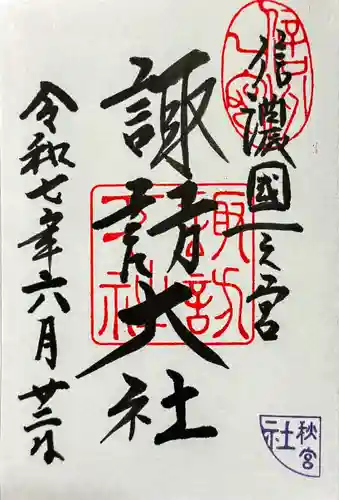 信濃國一之宮
諏訪大社
令和七年六月廿三日
諏訪
大社
秋宮
社